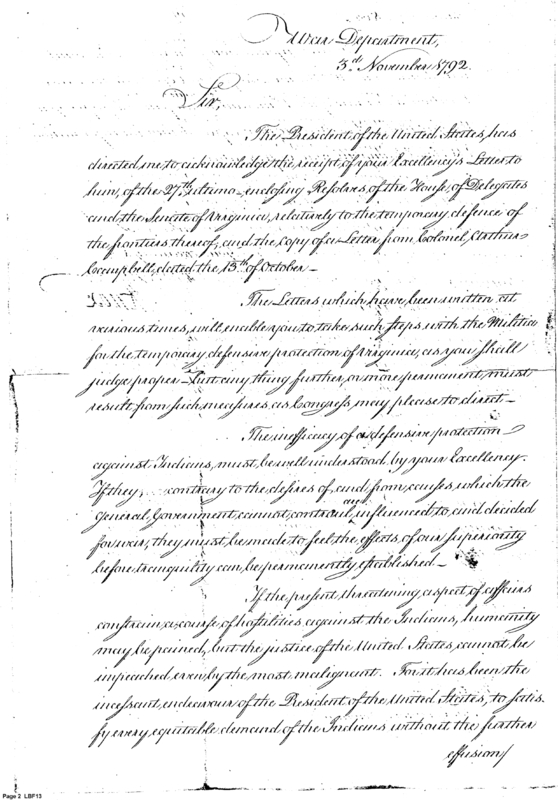 War Department,
3rd November 1792.
Sir,
The President of the United States, has
directed me to acknowledge the receipt of your Excellency's Letter to
him, of the 27th ultimo - enclosing Resolves, of the House, of Delegates
and the Senate of Virginia, relatively to the temporary defence of
the frontiers thereof, and the copy of a Letter from Colonel Arthur
Campbell, dated the 15th of October -
The Letters which, have been written at
various times, will enable you to take such steps with the Militia
for the temporary defensive protection of Virginia, as you shall
judge proper - But any thing further, or more permanent, must
result from such measures, as Congress may please to direct -
The inefficacy of a defensive protection
against Indians, must be well understood, by your Excellency.
If they, contrary to the desires of, and from, causes, which the
General, Government, cannot, controul, are influenced to, and decided
for war, they must be made to feel, the effects, of our superiority
before, tranquility can, be permanently established -
If the present threatening aspect of affairs
constrain a course of hostilities against the Indians, humanity
may be pained, but the justice of the United States, cannot be
impeached even, by the most malignant. For it has been the
incessant endeavour of the President of the United States, to satis
fy every equitable demand of the Indians without the further
effusion/
Page 2 LBF13